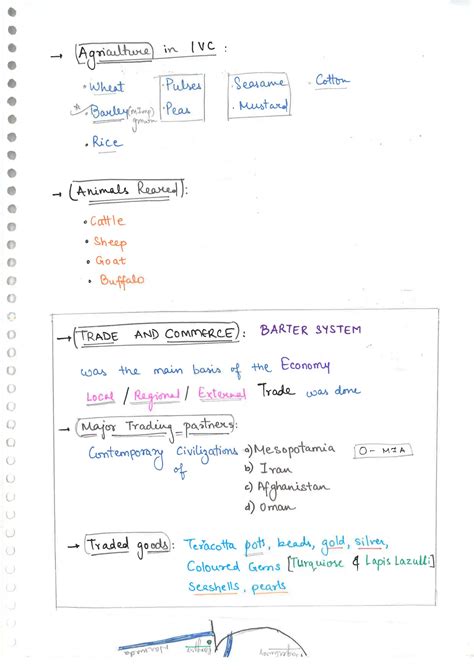 → Agriculture in IVC :
• Wheat • Pulses • Seasame • Cotton
• Barley • Peas • Mustard
• Rice
→ (Animals Reared):
• Cattle
• Sheep
• Goat
• Buffalo
→ (TRADE AND COMMERCE): BARTER SYSTEM
was the main basis of the Economy
Local / Regional / External Trade was done
→ Major Trading partners:
Contemporary Civilizations of a) Mesopotamia O-MIA
b) Iran
c) Afghanistan
d) Oman
→ (Traded goods): Teracotta pots, beads, gold, silver,
Coloured Gems [Turquiose & Lapis Lazulli]
Seashells, pearls
Narmada